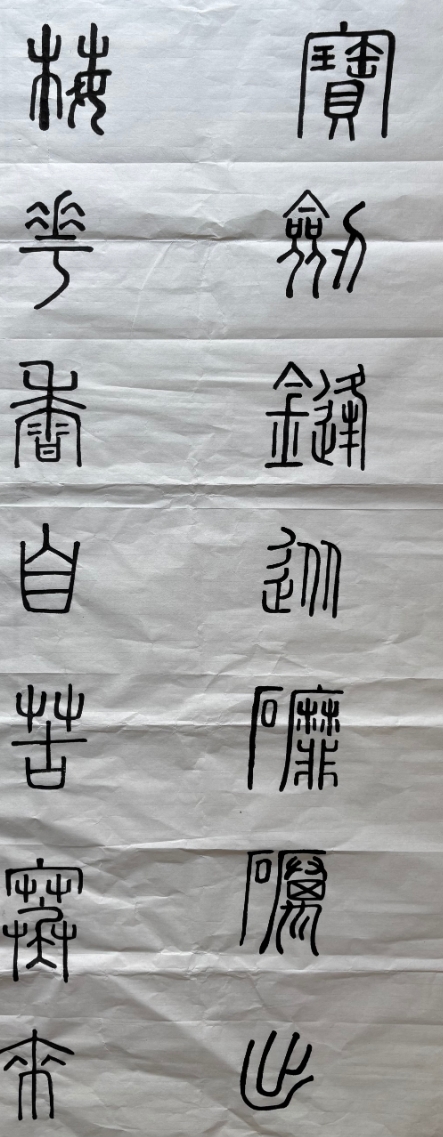 寶劍鋒從礳礪出
梅花香自苦寒來